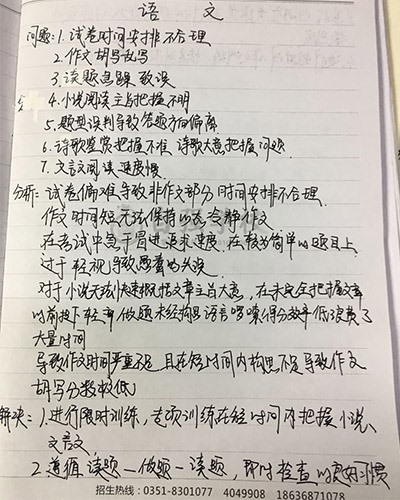 语 文
问题:1.试卷时间安排不合理
2.作文胡写乱写
3.读题急躁致误
4.小说阅读主旨把握不明
5.题型误判导致答题方向偏离
6.诗歌鉴赏把握不准 诗歌大意把握问题
7.文言文阅读速度慢
分析:试卷偏难导致非作文部分时间安排不合理
作文时间短无法保持以冷静作文
在考试中急于冒进追求速度,在较为简单的题目上
过于轻视导致愚蠢的失误
对于小说无法快速概括文章主旨大意,在未完全把握文章
以前提下轻率做题未经构思语言啰嗦得分效率低浪费了
大量时间
导致作文时间严重不足 且在短时间内构思不足导致作文
胡写分数较低
解决:1.进行限时训练,专项训练在短时间内把握小说、
文言文
2.遵循读题一做题一读题,即时检查的良好习惯
招生热线:0351-8301077 4049908 18636871078